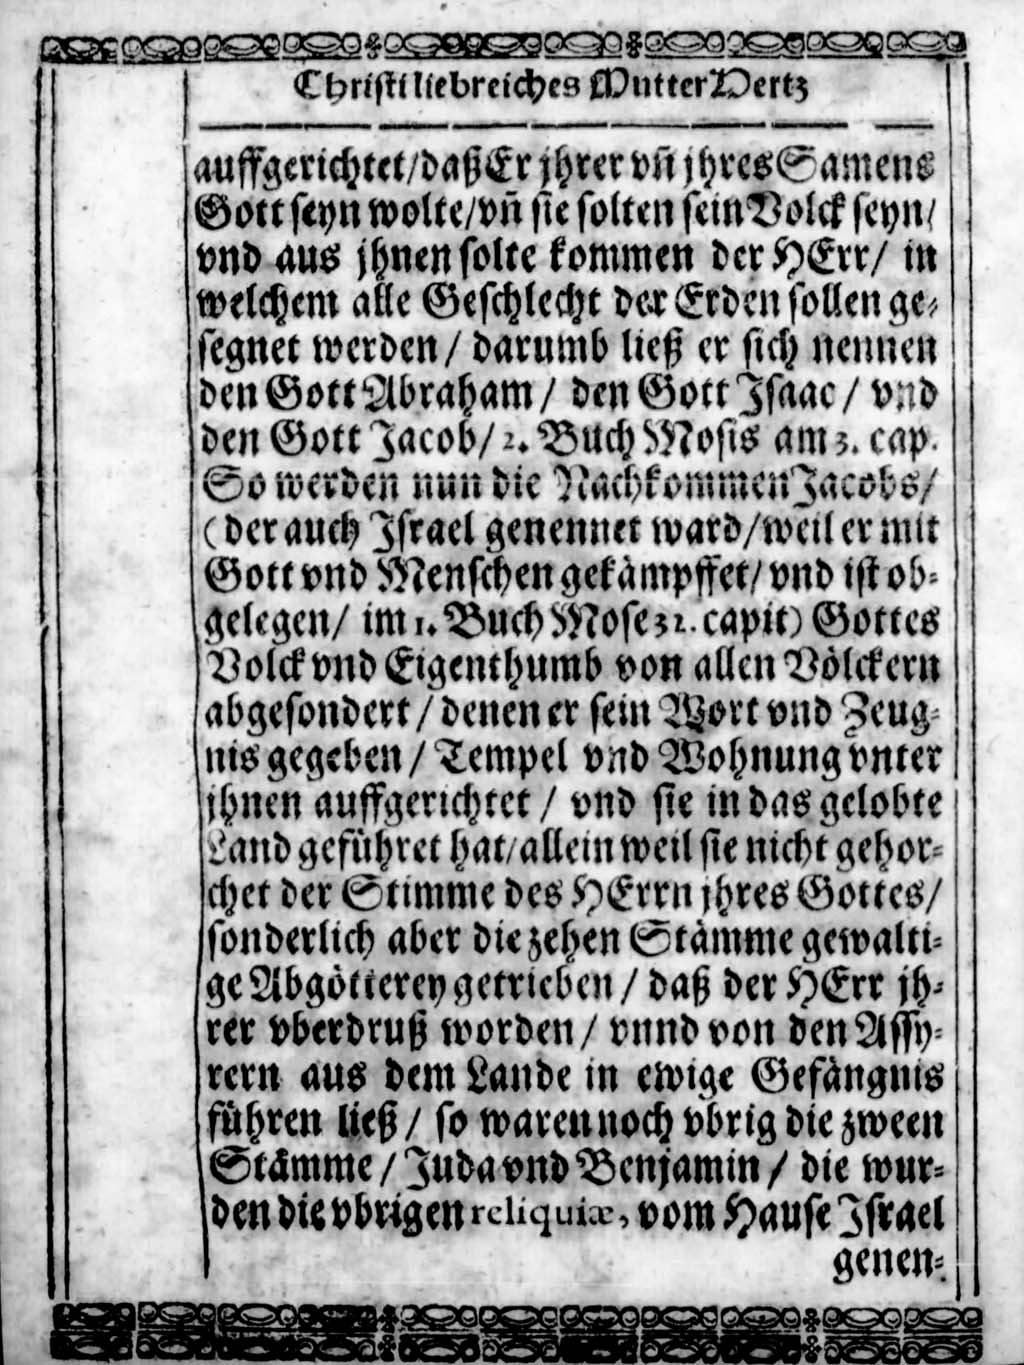 Christi liebreiches Mutter Hertz
auffgerichtet/ daß Er jhrer vñ jhres Samens
Gott seyn wolte/ vñ sie solten sein Volck seyn/
vnd aus jhnen solte kommen der HErr/ in
welchem alle Geschlecht der Erden sollen ge-
segnet werden/ darumb ließ er sich nennen
den Gott Abraham/ den Gott Isaac/ vnd
den Gott Jacob/ 2. Buch Mosis am 3. cap.
So werden nun die Nachkommen Jacobs/
(der auch Israel genennet ward/ weil er mit
Gott vnd Menschen gekämpffet/ vnd ist ob-
gelegen/ im 1. Buch Mose 32. capit) Gottes
Volck vnd Eigenthumb von allen Völckern
abgesondert/ denen er sein Wort vnd Zeug-
nis gegeben/ Tempel vnd Wohnung vnter
jhnen auffgerichtet/ vnd sie in das gelobte
Land geführet hat/ allein weil sie nicht gehor-
chet der Stimme des HErrn jhres Gottes/
sonderlich aber die zehen Stämme gewalti-
ge Abgötterey getrieben/ daß der HErr jh-
rer vberdruß worden/ vnnd von den Assy-
rern aus dem Lande in ewige Gefängnis
führen ließ/ so waren noch vbrig die zween
Stämme/ Juda vnd Benjamin/ die wur-
den die vbrigen reliquiæ, vom Hause Israel
genen-